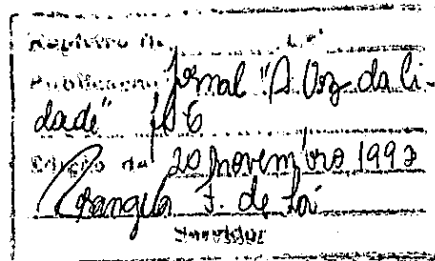 Registro n.
Publicação Jornal "A Voz da Ci-
dade" 106
Edição de 20 novembro 1992
Rosangela F. de Sá
Servidor